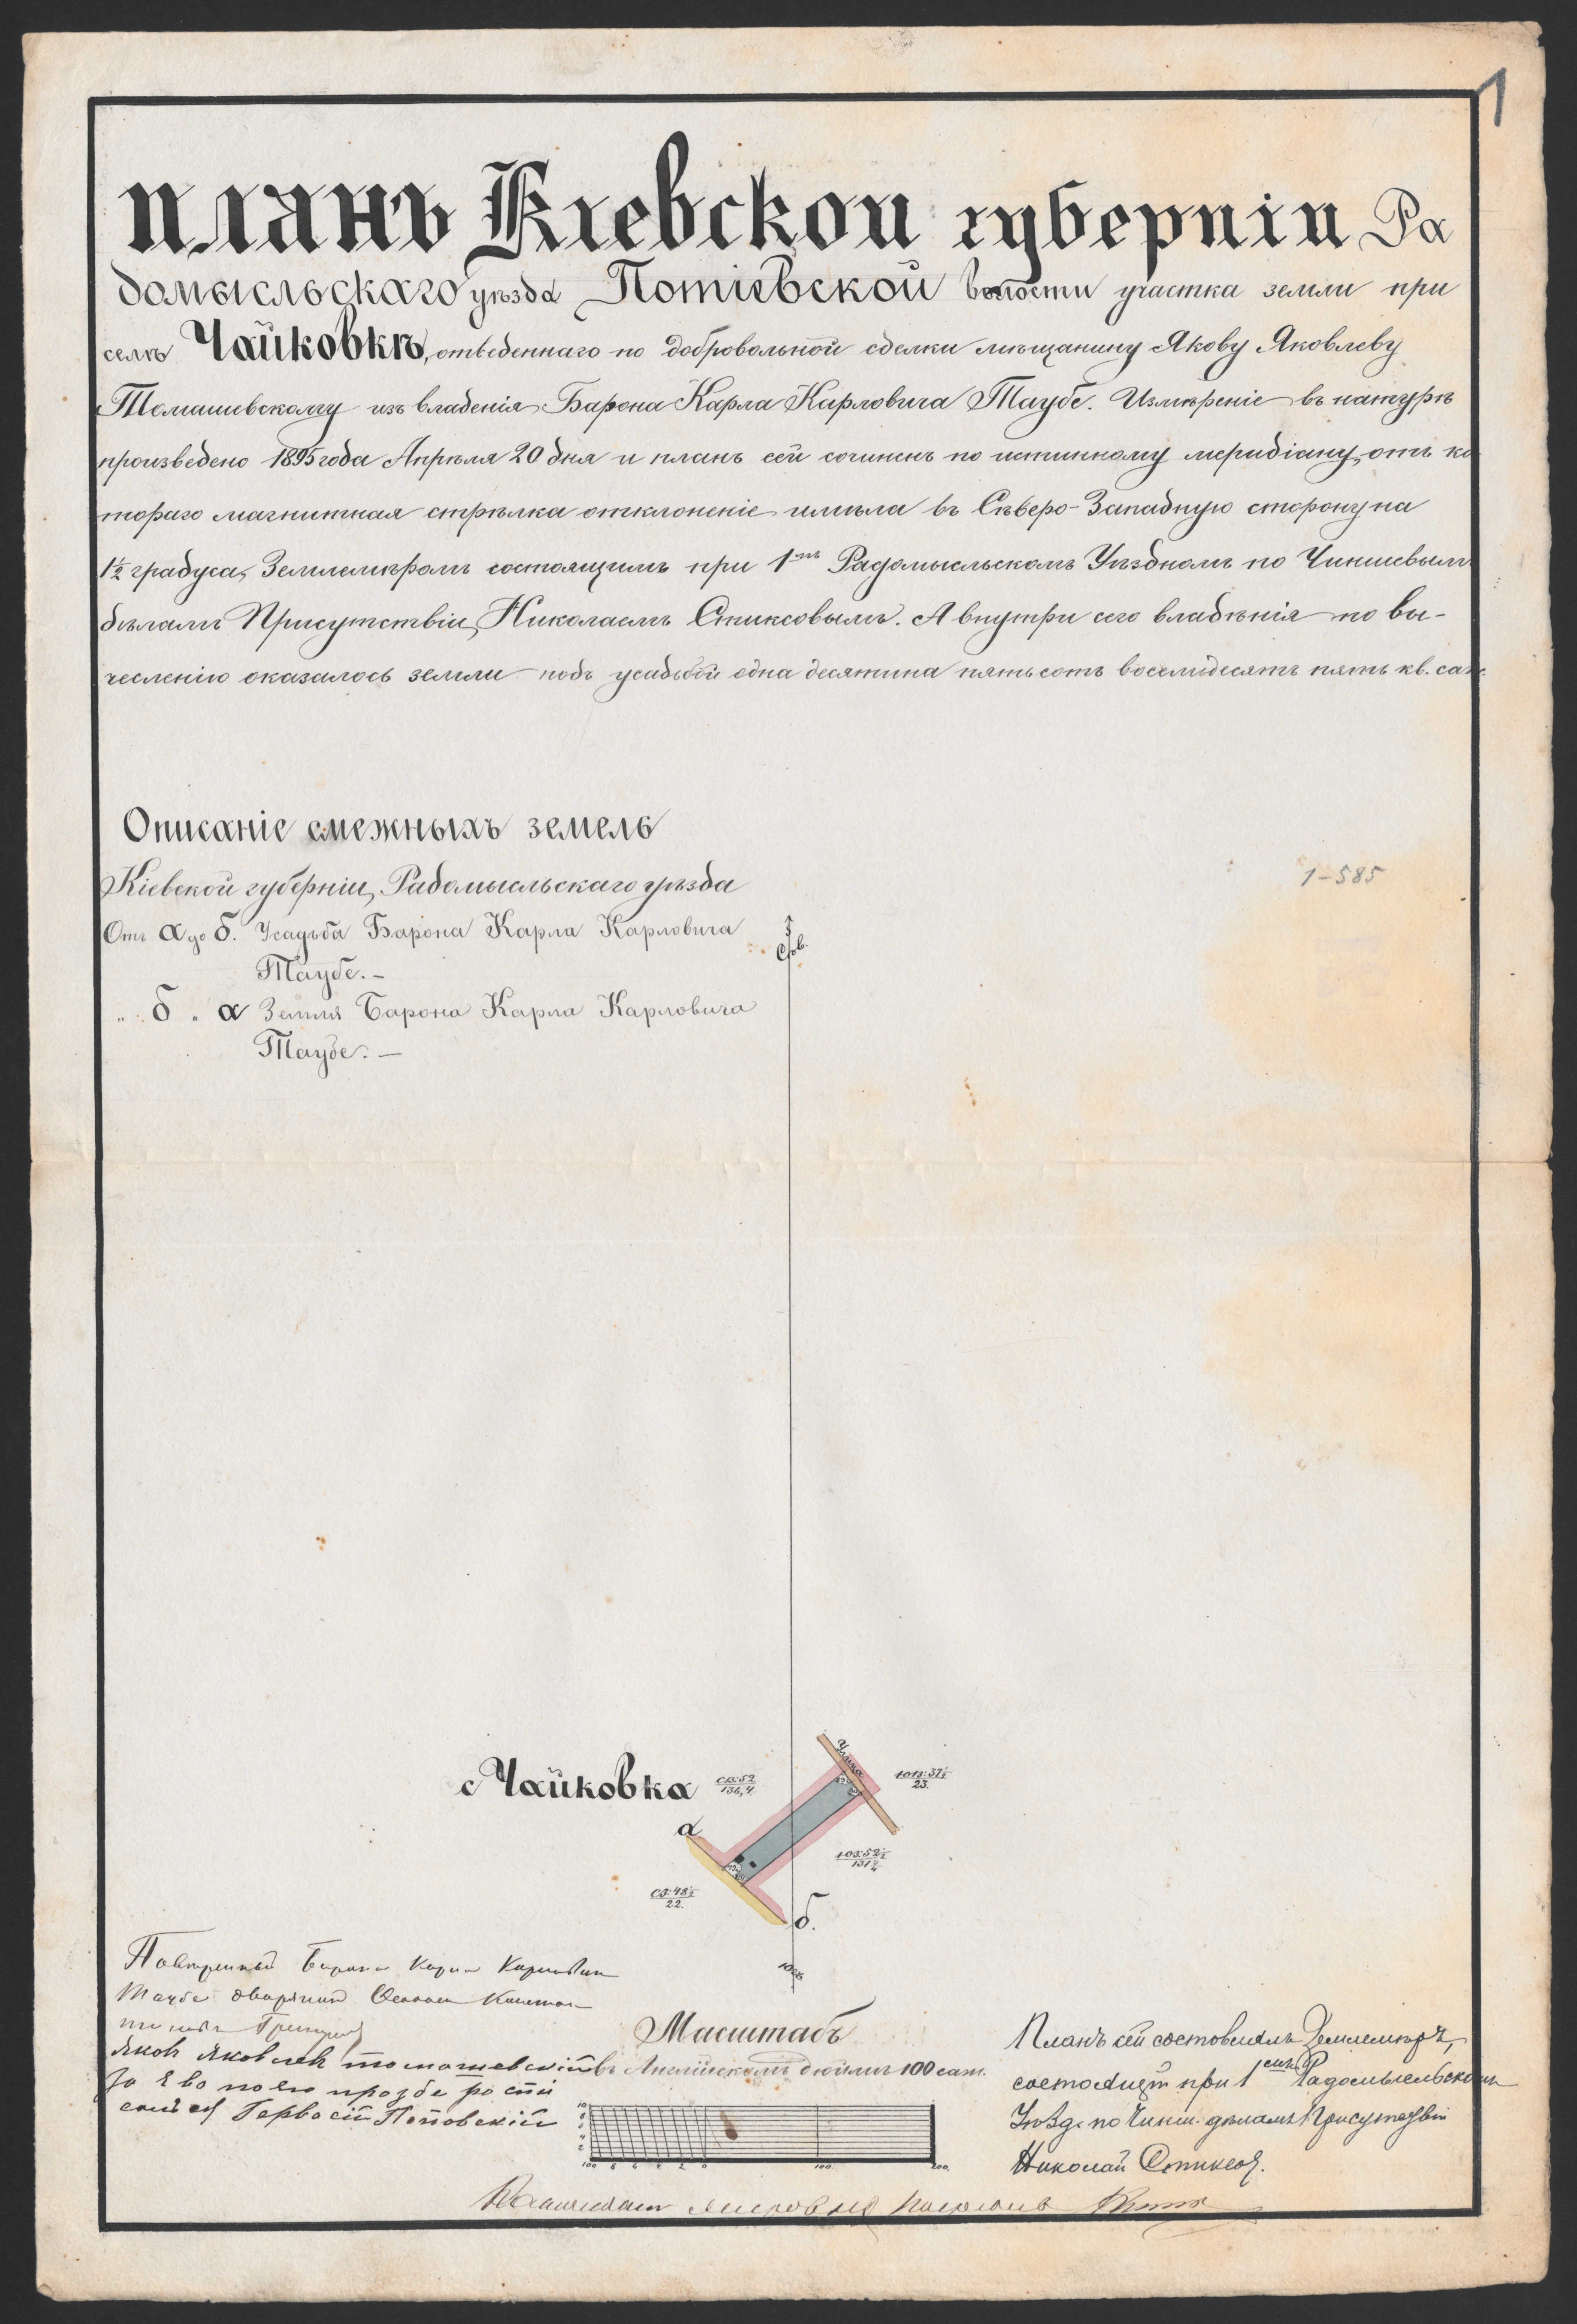 1
планъ Кіевской губерніи Ра
домысльскаго уѣзда Потіевской волости участка земли при
селѣ Чайковкѣ, отведеннаго по добровольной сделки мѣщанину Якову Яковлеву
Томашевскому изъ владенія Барона Карла Карловича Таубе. Измѣреніе въ натурѣ
произведено 1895 года Апрѣля 20 дня и планъ сей сочиненъ по истинному меридіану, отъ ко
тораго магнитная стрѣлка отклоненіе имѣла въ Сѣверо-Западную сторону на
1½ градуса, Землемѣромъ состоящимъ при 1мъ Радомысльскомъ Уѣздномъ по Чиншевымъ
дѣламъ Присутствіи, Николаемъ Стиксовымъ. А внутри сего владѣнія по вы-
численію оказалось земли подъ усадьбой одна десятина пятьсотъ восемьдесятъ пять кв. саж.
Описаніе смежныхъ земель
Кіевской губерніи, Радомысльскаго уѣзда
1-585
Отъ а до б. Усадьба Барона Карла Карловича
Таубе.-
" б " а Земля Барона Карла Карловича
Таубе.-
Сѣв.
Улица
с Чайковка
СВ:52
136,4
ЮВ:37½
23.
а
ЮЗ:52½
131¾
СЗ:48½
22.
б.
Югъ
Повѣренный Барона Карла Карловича
Таубе дворянинъ
Яковъ Яковлевъ томашевскій
За Яво по ево прозбе рости
сался Гервасій Поповскій
Масштабъ
въ Англійскомъ дюймѣ 100 саж.
10 8 6 4 2
100 8 6 4 2 0 100. 200.
Планъ сей составлялъ Землемѣръ,
состоящій при 1 Радомысльскомъ
Уѣзд. по Чинш. дѣламъ Присутствіи
Николай Стиксовъ.